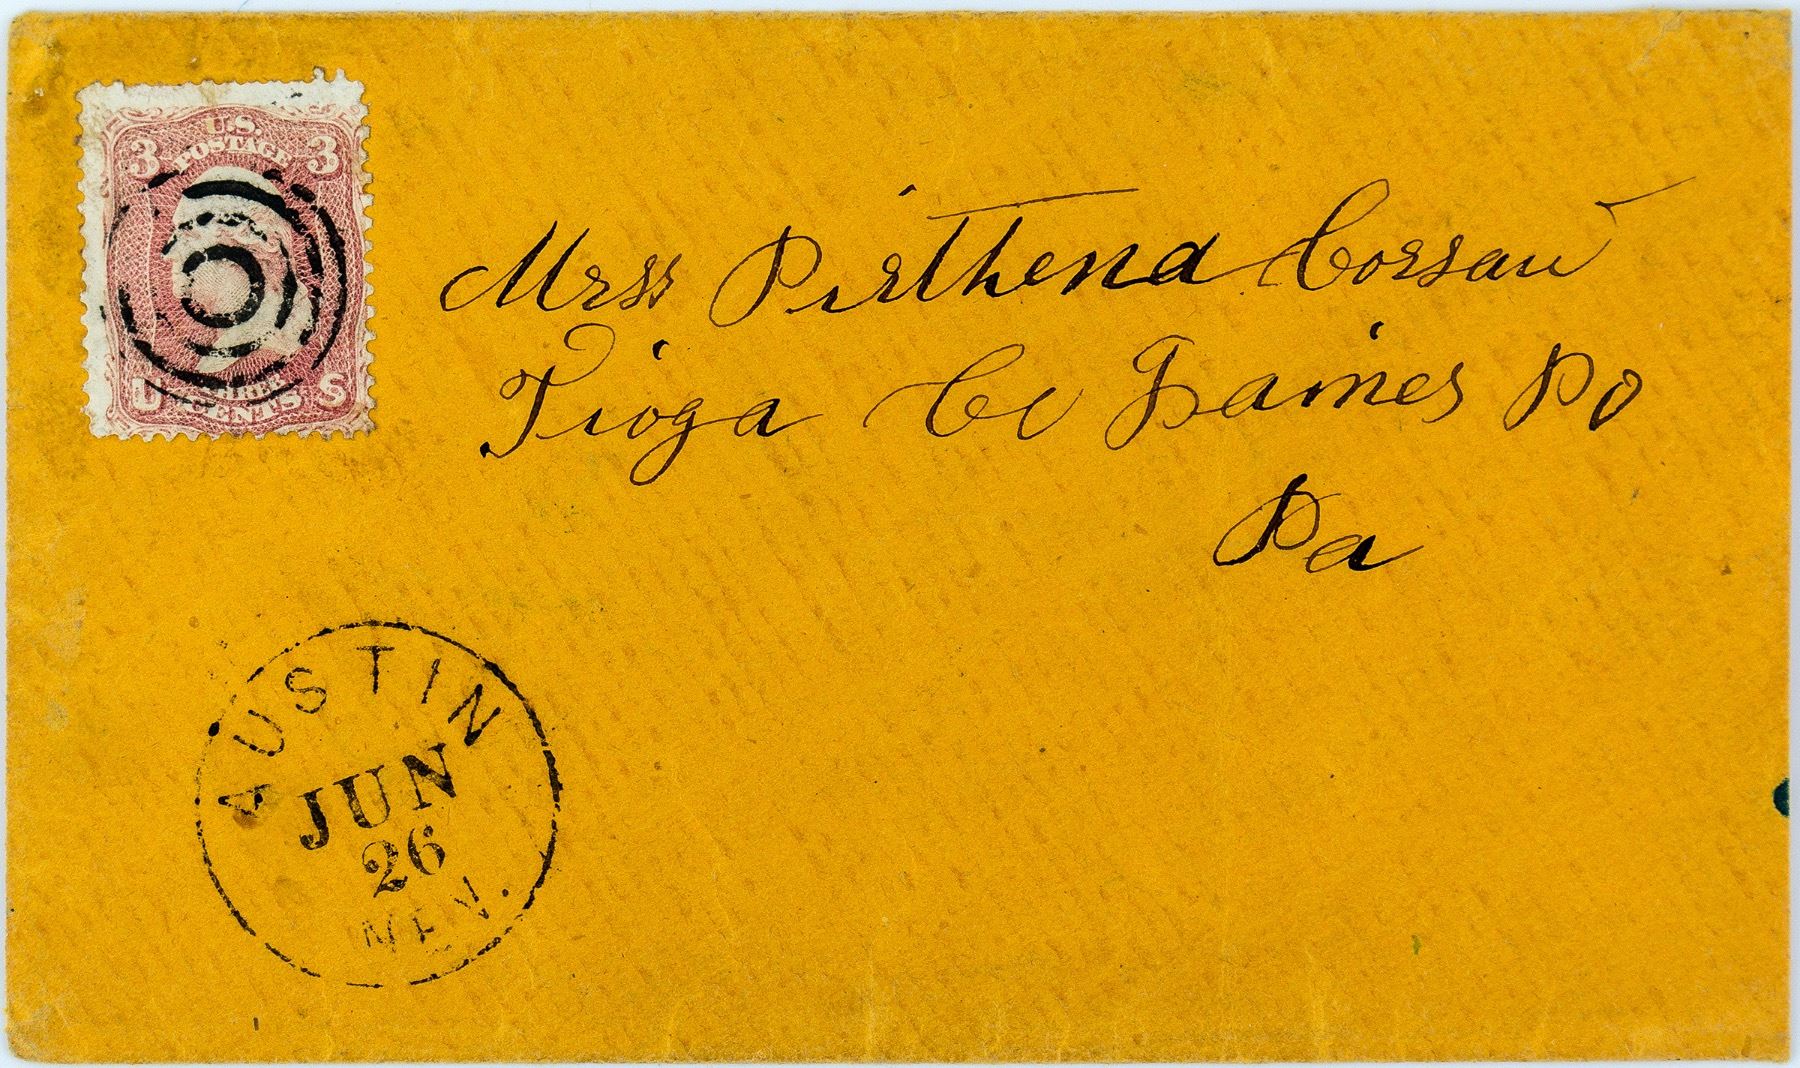 U.S.
3 POSTAGE 3
U THREE S
CENTS
Mrss Pirthena Corsaw
Tioga Co Gaines Po
Pa
AUSTIN
JUN
26
NEV.